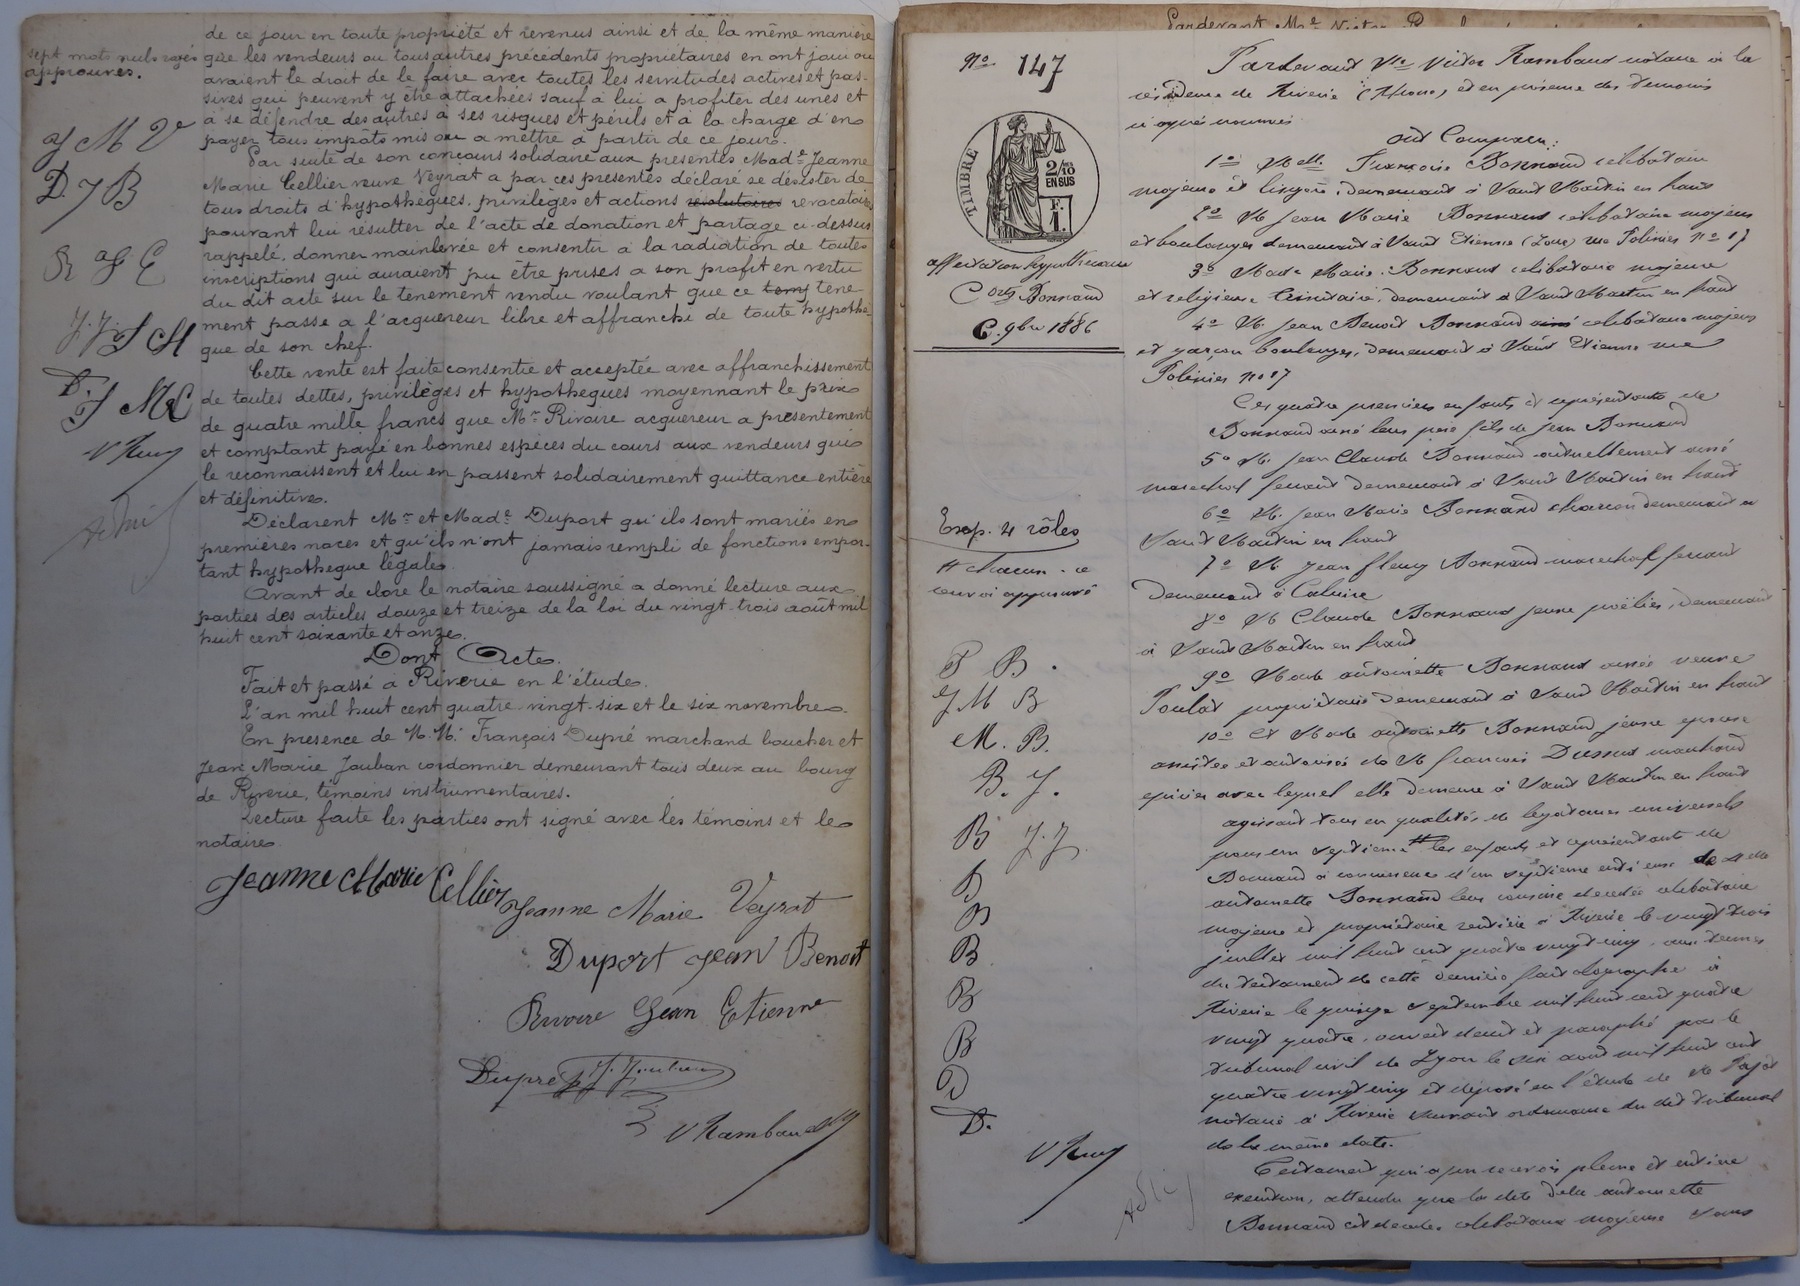 sept mots nuls rayés
approuvés.
J M V
D. J B
R J E
J. J. S M
V Ram
de ce jour en toute propriété et revenus ainsi et de la même manière
que les vendeurs ou tous autres précédents propriétaires en ont joui ou
avaient le droit de le faire avec toutes les servitudes actives et pas-
sives qui peuvent y être attachées sauf à lui a profiter des unes et
à se défendre des autres à ses risques et périls et à la charge d'en
payer tous impôts mis ou a mettre à partir de ce jour.
Par suite de son concours solidaire aux présentes Made Jeanne
Marie Cellier veuve Veyrat a par ces présentes déclaré se désister de
tous droits d'hypothèques, privilèges et actions revocatoires
pouvant lui résulter de l'acte de donation et partage ci-dessus
rappelé, donner mainlevée et consentir à la radiation de toutes
inscriptions qui auraient pu être prises a son profit en vertu
du dit acte sur le tenement vendu voulant que ce tene
ment passe a l'acquereur libre et affranchi de toute hypothè
que de son chef.
Cette vente est faite consentie et acceptée avec affranchissement
de toutes dettes, privilèges et hypothèques moyennant le prix
de quatre mille francs que Mr Rivoire acquereur a présentement
et comptant payé en bonnes espèces du cours aux vendeurs qui
le reconnaissent et lui en passent solidairement quittance entière
et définitive.
Déclarent Mr et Made Duport qu'ils sont mariés en
premières noces et qu'ils n'ont jamais rempli de fonctions empor-
tant hypothèque légale.
Avant de clore le notaire soussigné a donné lecture aux
parties des articles douze et treize de la loi du vingt-trois août mil
huit cent soixante et onze.
Dont Acte.
Fait et passé à Riverie en l'étude.
L'an mil huit cent quatre vingt-six et le six novembre.
En présence de M.M. François Dupré marchand boucher et
Jean Marie Jouban cordonnier demeurant tous deux au bourg
de Riverie, témoins instrumentaires.
Lecture faite les parties ont signé avec les témoins et le
notaire.
Jeanne Marie Cellier
Jeanne Marie Veyrat
Duport Jean Benoit
Rivoire Jean Etienne
Dupré
V Rambaud
No 147
TIMBRE
2/10
EN SUS
F.
1.
affectation hypothécaire
Cts Bonnand
6. 9bre 1886
Exp. 4 rôles
# chacun - ce
renvoi approuvé
F B.
J M B
M. B.
B. J.
B J. J.
B
B
B
B
B
D
D.
V Ram
Pardevant Me Victor Rambaud notaire à la
résidence de Riverie (Rhône) et en présence des témoins
ci après nommés
ont Comparu:
1o Melle Françoise Bonnand célibataire
majeure et lingère, demeurant à Saint Martin en haut
2o M Jean Marie Bonnand célibataire majeur
et boulanger demeurant à Saint Etienne (Loire) rue Polinier No 17
3o Made Marie Bonnand célibataire majeure
et religieuse trinitaire, demeurant à Saint Martin en haut
4o M. Jean Benoit Bonnand célibataire majeur
et garçon boulanger, demeurant à Saint Etienne rue
Polinier no 17
Ces quatre premiers enfants et représentants de
Bonnand ainé leur père fils de Jean Bonnand
5o M. Jean Claude Bonnand actuellement ainé
marechal ferrant demeurant à Saint Martin en haut
6o M. Jean Marie Bonnand charron demeurant a
Saint Martin en haut
7o M Jean fleury Bonnand marechal ferrant
demeurant à Caluire
8o M Claude Bonnand jeune poëlier, demeurant
à Saint Martin en haut
9o Made Antoinette Bonnand ainée veuve
Poulat propriétaire demeurant à Saint Martin en haut
10o et Made antoinette Bonnand jeune epouse
assistée et autorisée de M françois Dussud marchand
epicier avec lequel elle demeure à Saint Martin en haut
agissant tous en qualités de légataires universels
pour un septième # les enfants et représentants de
Bonnand à concurrence d'un septième entr'eux de Melle
antoinette Bonnand leur cousine decedée célibataire
majeure et propriétaire rentière à Riverie le vingt trois
juillet mil huit cent quatre vingt cinq, aux termes
du testament de cette dernière fait olographe à
Riverie le quinze septembre mil huit cent quatre
vingt quatre, ouvert décrit et paraphé par le
tribunal civil de Lyon le six aout mil huit cent
quatre vingt cinq et déposé en l'étude de Me Pajot
notaire à Riverie suivant ordonnance du dit tribunal
de la même date.
Testament qui a pu recevoir pleine et entière
execution, attendu que la dite delle antoinette
Bonnand est decedée célibataire majeure sans